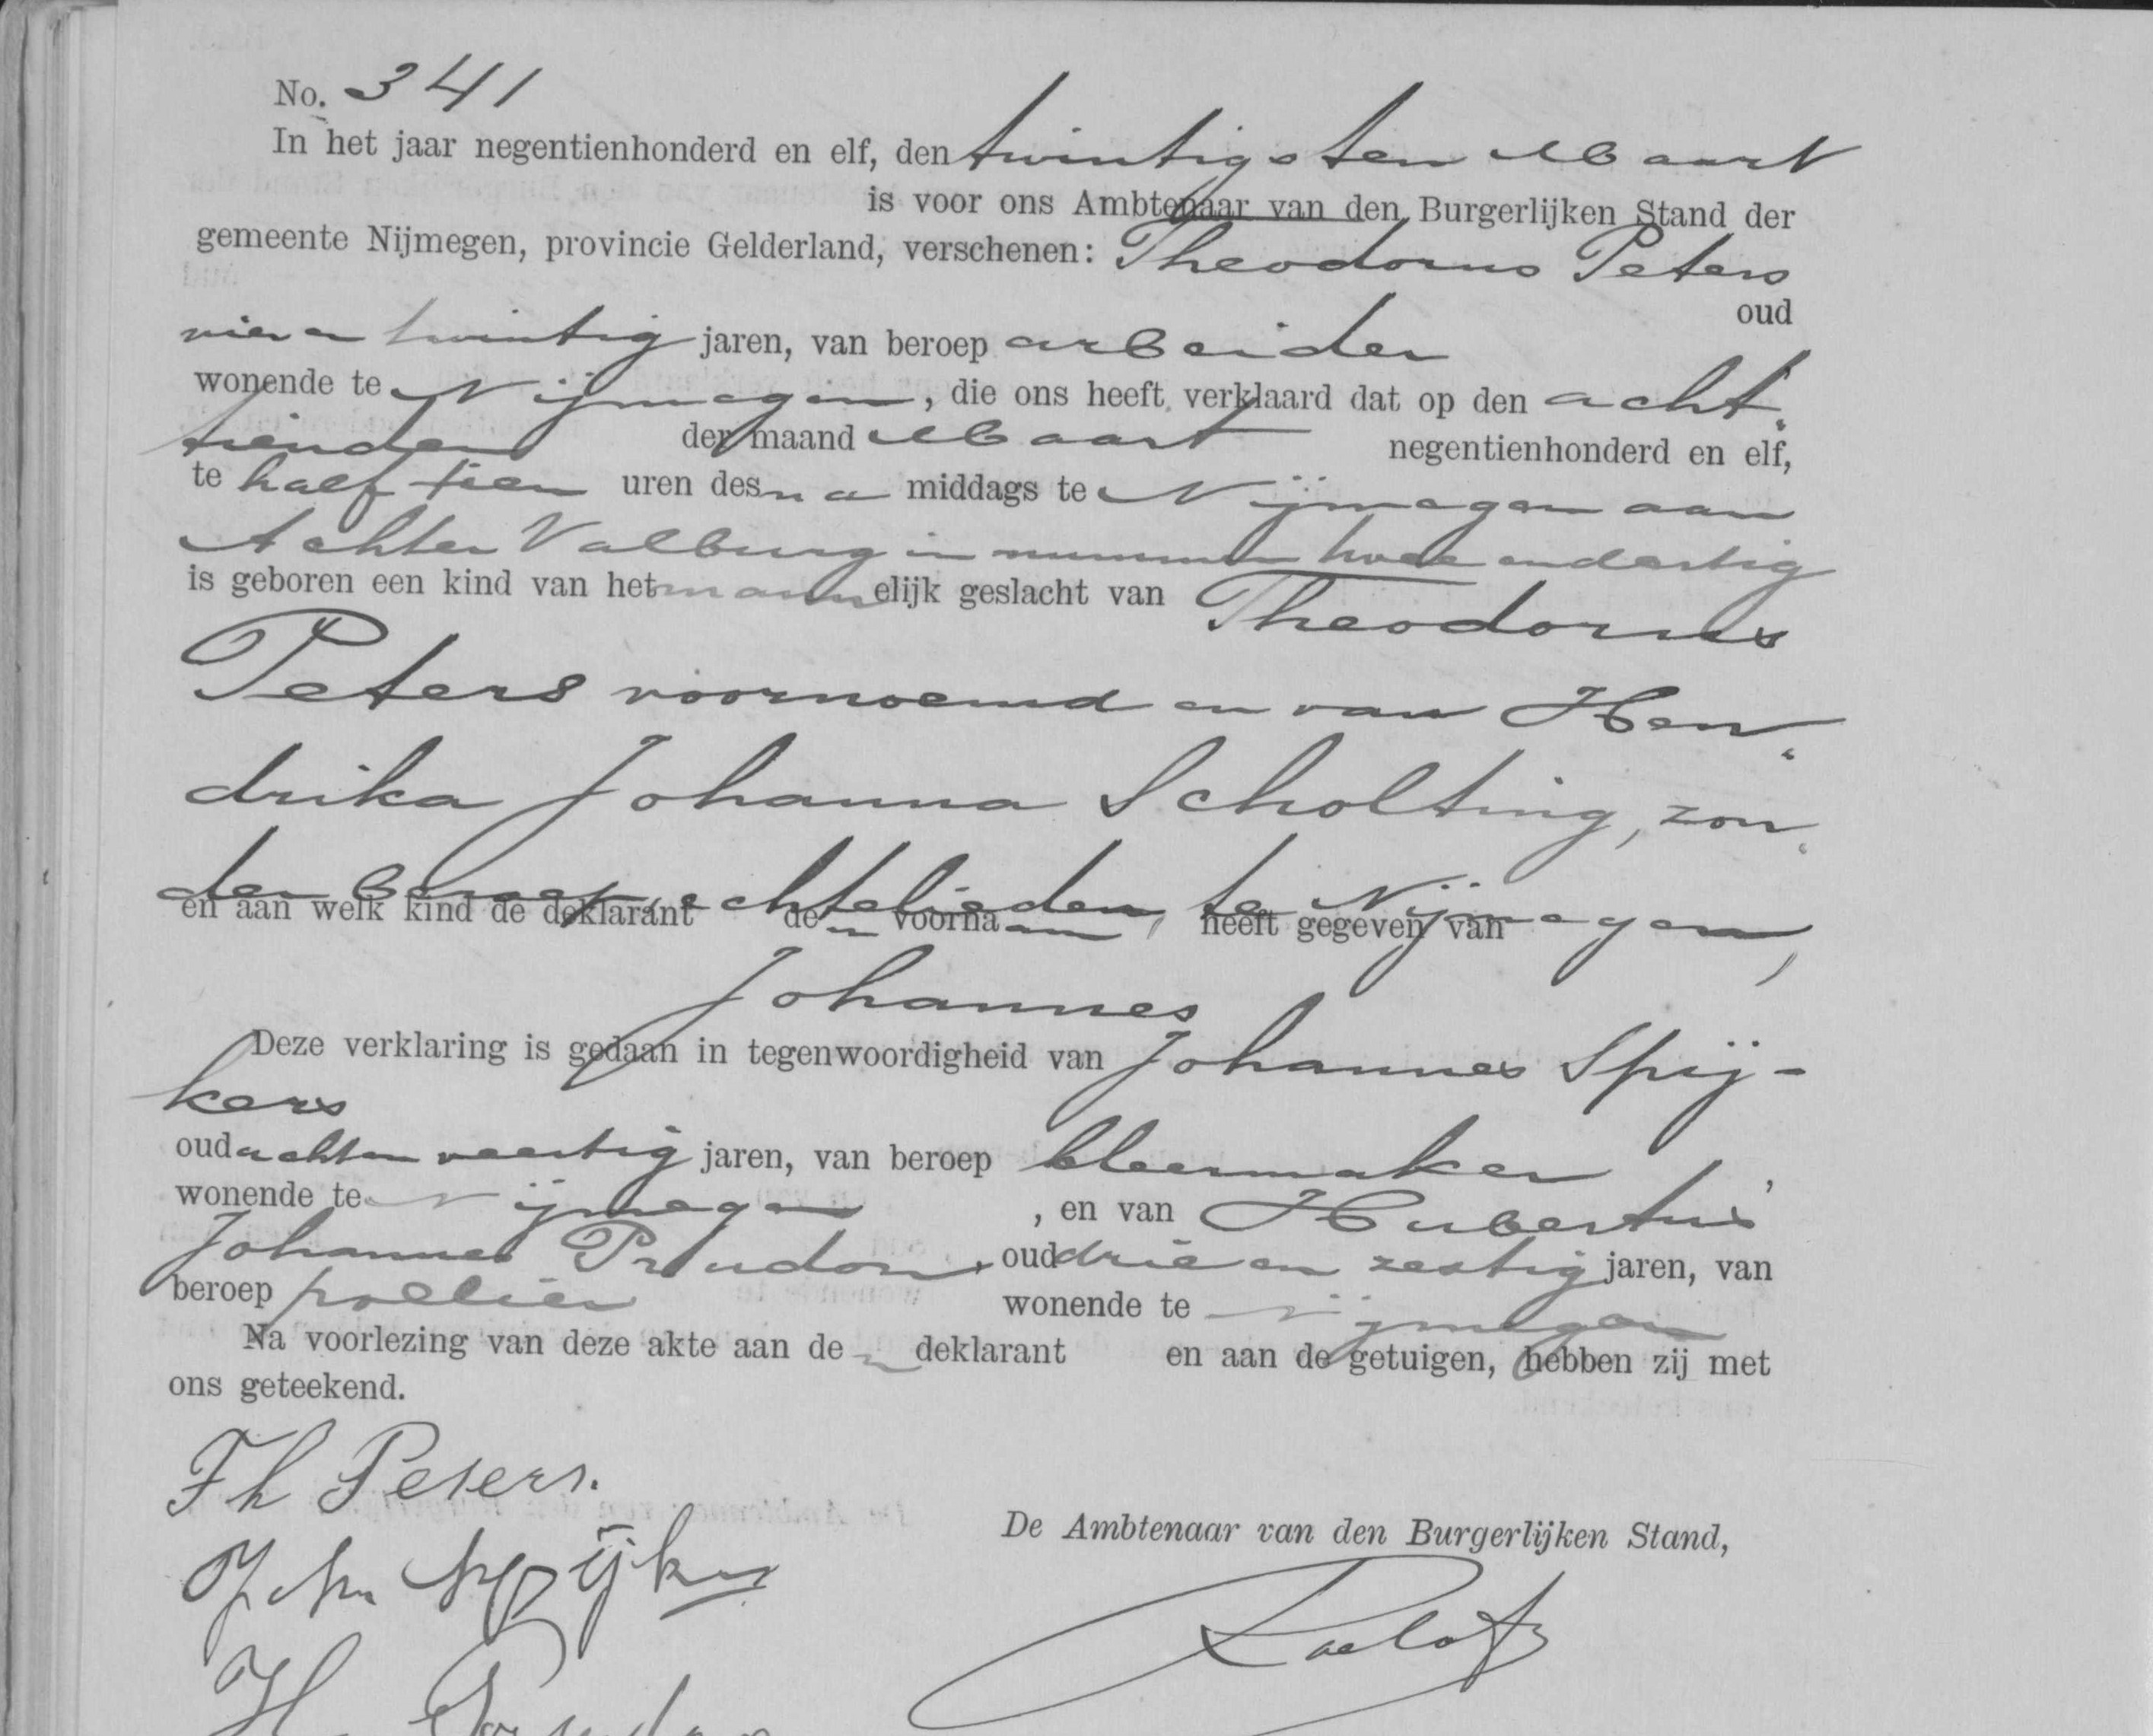 No. 341
In het jaar negentienhonderd en elf, den twintigsten Maart
is voor ons Ambtenaar van den Burgerlijken Stand der
gemeente Nijmegen, provincie Gelderland, verschenen: Theodorus Peters
oud
vierentwintig jaren, van beroep arbeider
wonende te Nijmegen, die ons heeft verklaard dat op den acht„
tienden der maand Maart negentienhonderd en elf,
te half tien uren des na middags te Nijmegen aan
Achter Valburg in nummer twee en dertig
is geboren een kind van het mannelijk geslacht van Theodorus
Peters voornoemd en van Hen„
drika Johanna Scholting, zon„
der beroep, echtelieden, te Nijmegen,
en aan welk kind de deklarant den voornaam heeft gegeven van
Johannes
Deze verklaring is gedaan in tegenwoordigheid van Johannes Spij-
kers
oud achtenveertig jaren, van beroep kleermaker,
wonende te Nijmegen, en van Hubertus
Johannes Prudon, oud drie en zestig jaren, van
beroep poelier wonende te Nijmegen
Na voorlezing van deze akte aan den deklarant en aan de getuigen, hebben zij met
ons geteekend.
Th Peters.
De Ambtenaar van den Burgerlijken Stand,
Joh Spijkers
H Prudon